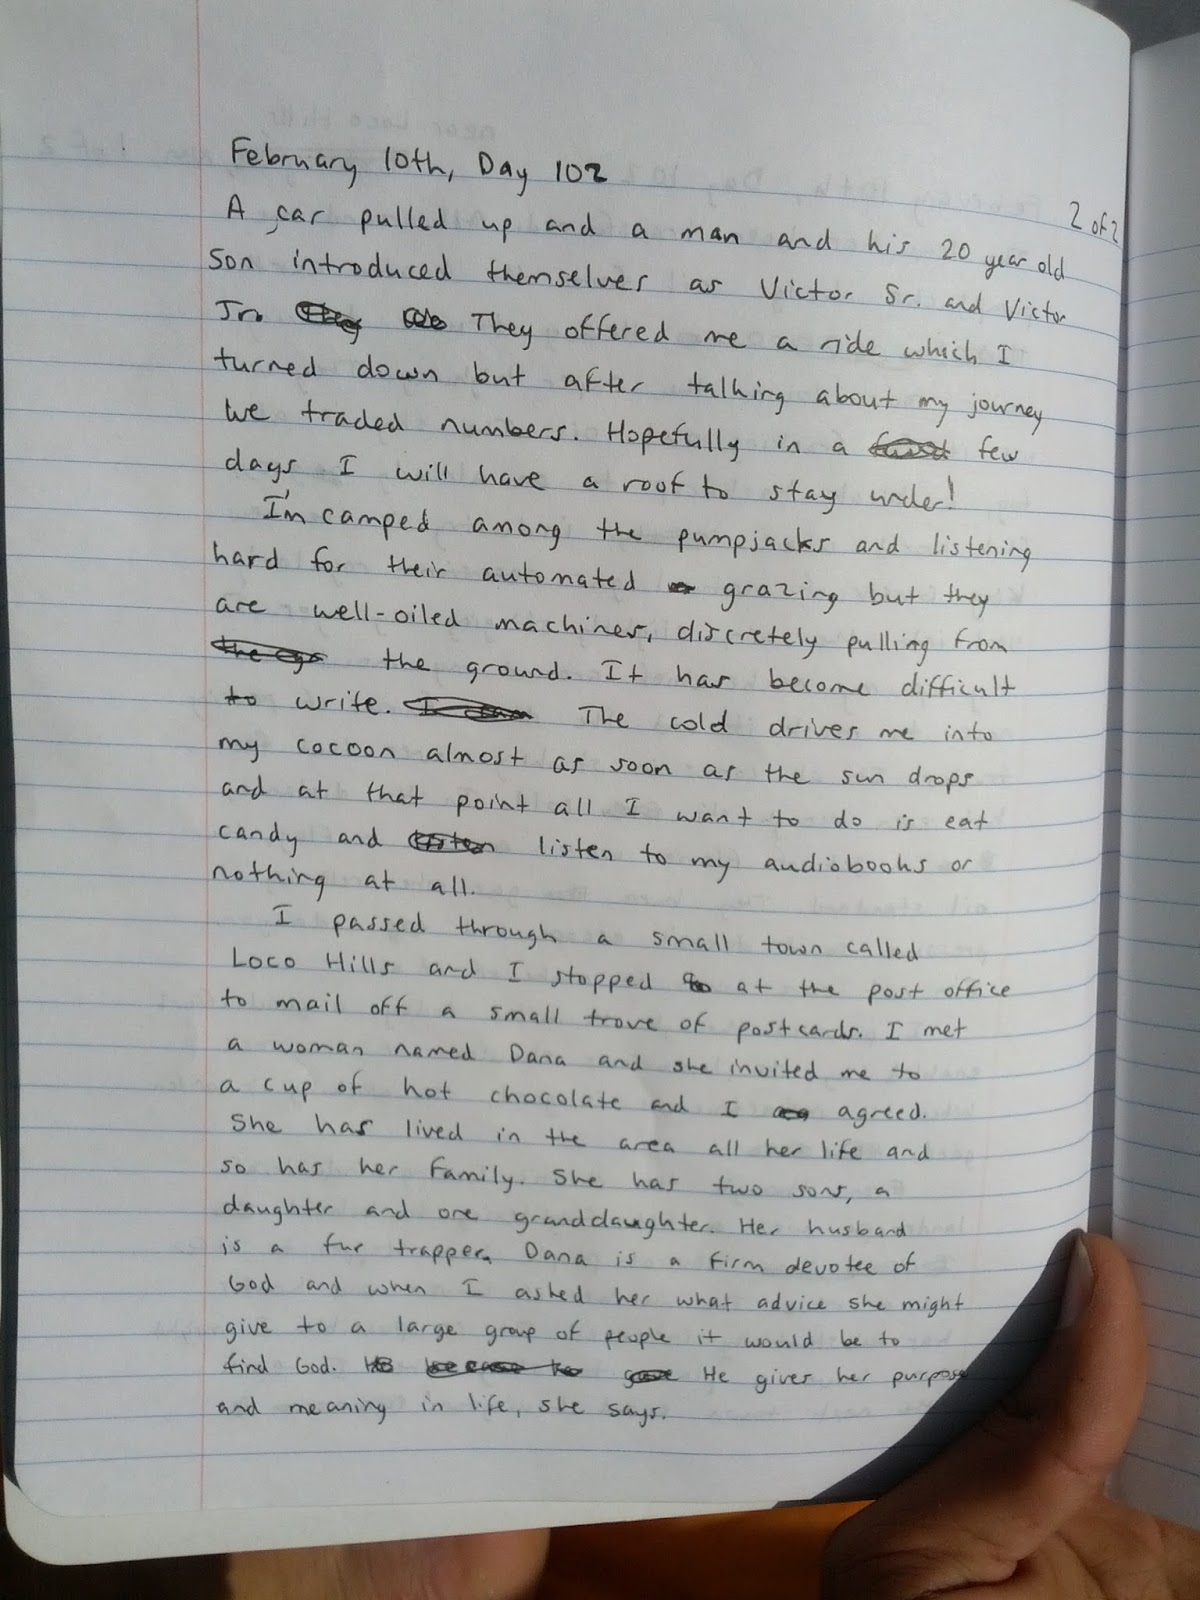 February 10th, Day 102
2 of 2
A car pulled up and a man and his 20 year old
Son introduced themselves as Victor Sr. and Victor
Jr. They offered me a ride which I
turned down but after talking about my journey
we traded numbers. Hopefully in a few
days I will have a roof to stay under!
I'm camped among the pumpjacks and listening
hard for their automated grazing but they
are well-oiled machines, discretely pulling from
the ground. It has become difficult
to write. The cold drives me into
my cocoon almost as soon as the sun drops
and at that point all I want to do is eat
candy and listen to my audiobooks or
nothing at all.
I passed through a small town called
Loco Hills and I stopped at the post office
to mail off a small trove of postcards. I met
a woman named Dana and she invited me to
a cup of hot chocolate and I agreed.
She has lived in the area all her life and
so has her family. She has two sons, a
daughter and one granddaughter. Her husband
is a fur trapper. Dana is a firm devotee of
God and when I asked her what advice she might
give to a large group of people it would be to
find God. He gives her purpose
and meaning in life, she says.